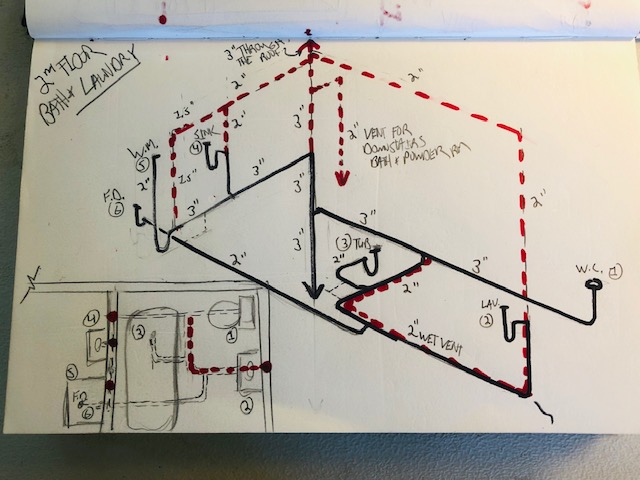 2ND FLOOR
BATH & LAUNDRY
3" THROUGH
THE ROOF
2"
2"
1.5"
SINK
④
3"
2"
VENT FOR
DOWNSTAIRS
BATH & POWDER RM
W.M.
⑤
2"
1.5"
2"
3"
3"
2"
F.D.
⑥
3"
3"
3"
③ TUB
2"
3"
W.C. ①
2"
2"
LAV.
②
2" WET VENT
④
③
①
⑤
F.D.
⑥
②